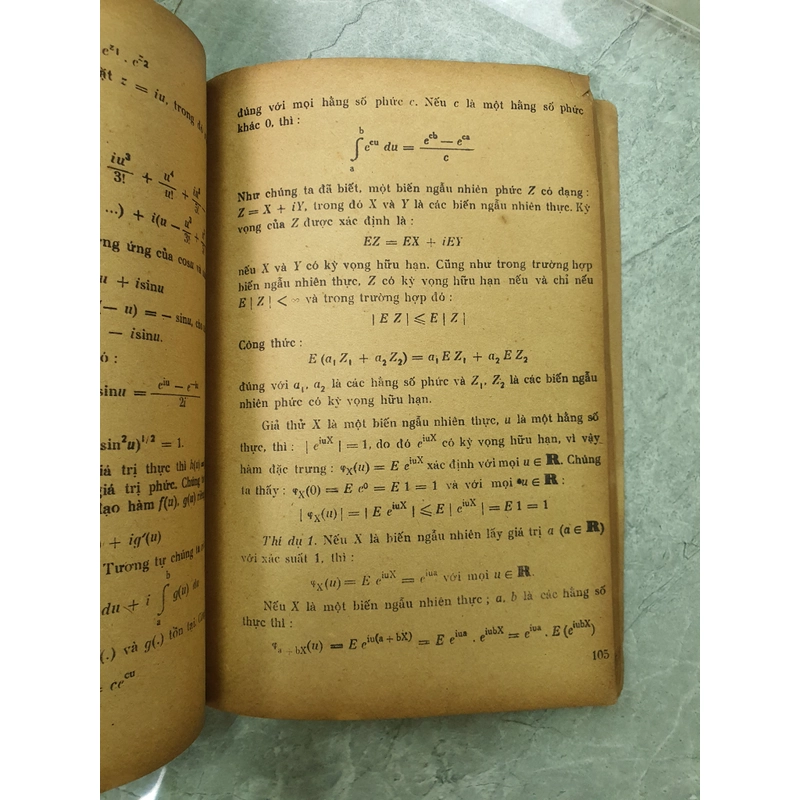 e^{z1} . e^{z2}
ặt z = iu, trong đó
iu³/3! + u⁴/u! +
...) + i(u - u³/3! +
ng ứng của cosu và
u + isinu
(- u) = - sinu,
- isinu.
ó :
sinu = (e^{iu} - e^{-iu})/2i
sin²u)^{1/2} = 1.
iá trị thực thì
giá trị phức. Chúng
đạo hàm f(u), g(u)
) + ig'(u)
Tương tự chúng ta
du + i ∫_a^b g(u) du
(.) và g(.) tồn tại.
= ce^{cu}
đúng với mọi hằng số phức c. Nếu c là một hằng số phức
khác 0, thì :
∫_a^b e^{cu} du = (e^{cb} - e^{ca})/c
Như chúng ta đã biết, một biến ngẫu nhiên phức Z có dạng :
Z = X + iY, trong đó X và Y là các biến ngẫu nhiên thực. Kỳ
vọng của Z được xác định là :
EZ = EX + iEY
nếu X và Y có kỳ vọng hữu hạn. Cũng như trong trường hợp
biến ngẫu nhiên thực, Z có kỳ vọng hữu hạn nếu và chỉ nếu
E | Z | < ∞ và trong trường hợp đó :
| E Z | ⩽ E | Z |
Công thức :
E (a₁ Z₁ + a₂ Z₂) = a₁ E Z₁ + a₂ E Z₂
đúng với a₁, a₂ là các hằng số phức và Z₁, Z₂ là các biến ngẫu
nhiên phức có kỳ vọng hữu hạn.
Giả thử X là một biến ngẫu nhiên thực, u là một hằng số
thực, thì : | e^{iuX} | = 1, do đó e^{iuX} có kỳ vọng hữu hạn, vì vậy
hàm đặc trưng : φ_X(u) = E e^{iuX} xác định với mọi u ∈ ℝ. Chúng
ta thấy : φ_X(0) = E e⁰ = E 1 = 1 và với mọi u ∈ ℝ :
| φ_X(u) | = | E e^{iuX} | ⩽ E | e^{iuX} | = E 1 = 1
Thí dụ 1. Nếu X là biến ngẫu nhiên lấy giá trị a (a ∈ ℝ)
với xác suất 1, thì :
φ_X(u) = E e^{iuX} = e^{iua} với mọi u ∈ ℝ.
Nếu X là một biến ngẫu nhiên thực ; a, b là các hằng số
thực thì :
φ_{a + bX}(u) = E e^{iu(a + bX)} = E e^{iua} . e^{iubX} = e^{iua} . E (e^{iubX})
105